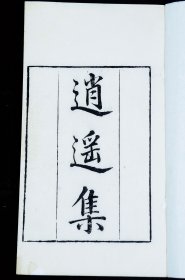 逍遥集